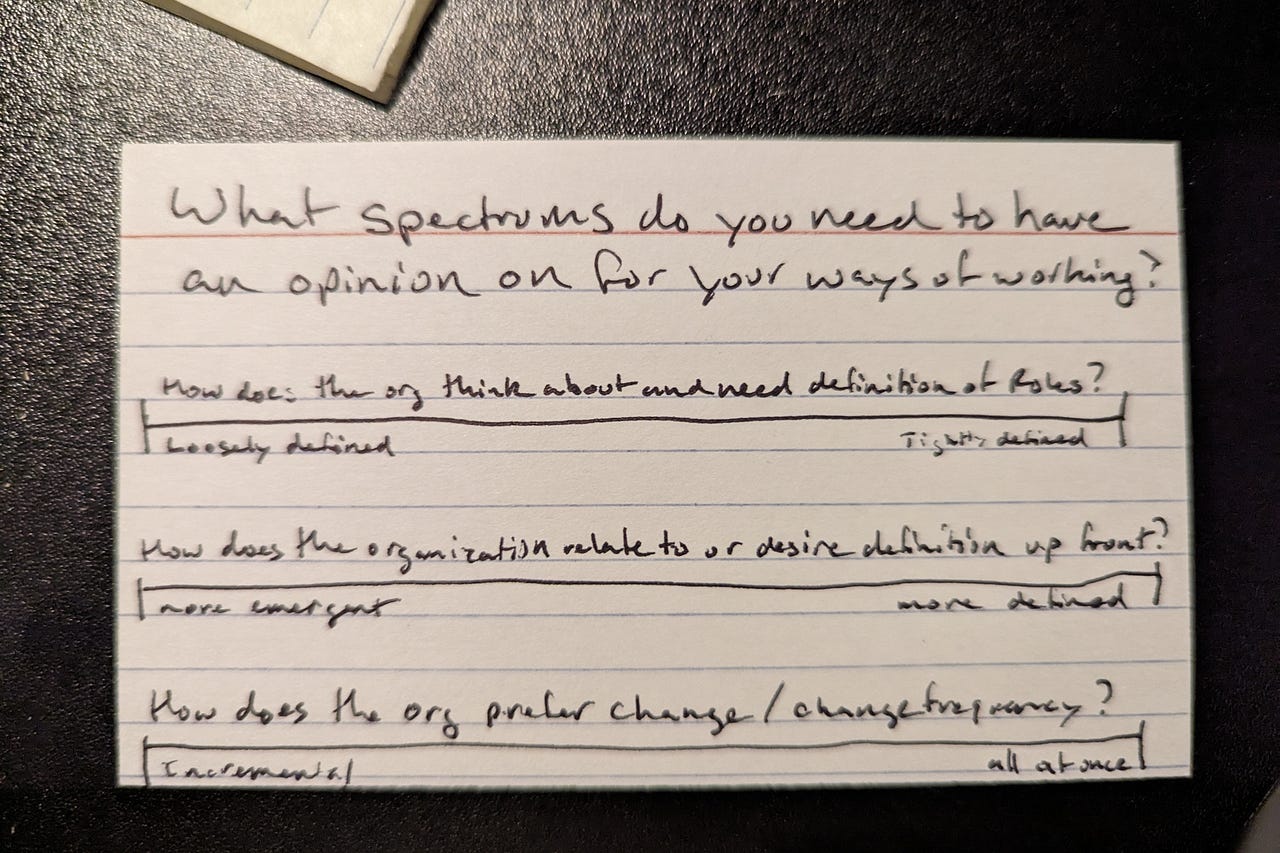 What spectrums do you need to have
an opinion on for your ways of working?
How does the org think about and need definition of Roles?
Loosely defined Tightly defined
How does the organization relate to or desire definition up front?
more emergent more defined
How does the org prefer change / change frequency?
Incremental all at once